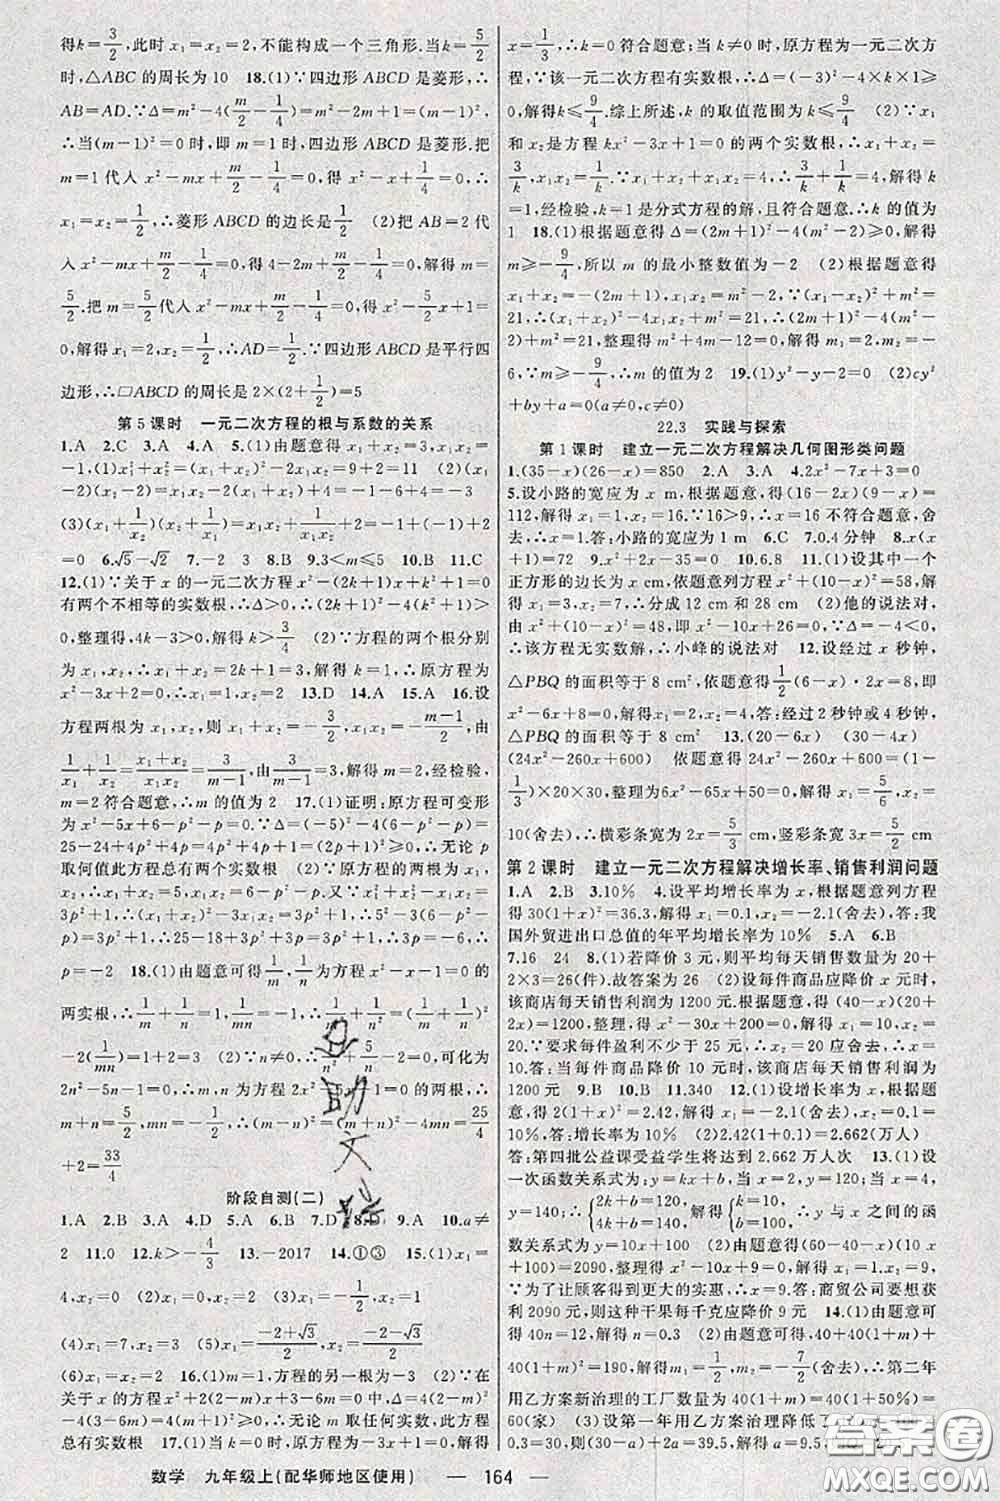 得k=3/2，此时x₁=x₂=2，不能构成一个三角形.当k=5/2
时，△ABC的周长为10　18.(1)∵四边形ABCD是菱形，∴
AB=AD.∵Δ=m²-4(m/2-1/4)=m²-2m+1=(m-1)²，
∴当(m-1)²=0时，即m=1时，四边形ABCD是菱形.把
m=1代入x²-mx+m/2-1/4=0，得x²-x+1/4=0，∴
x₁=x₂=1/2，∴菱形ABCD的边长是1/2　(2)把AB=2代
入x²-mx+m/2-1/4=0，得4-2m+m/2-1/4=0，解得m=
5/2.把m=5/2代入x²-mx+m/2-1/4=0，得x²-5/2x+1=
0，解得x₁=2，x₂=1/2，∴AD=1/2.∵四边形ABCD是平行四
边形，∴□ABCD的周长是2×(2+1/2)=5
第5课时　一元二次方程的根与系数的关系
1.A　2.C　3.A　4.A　5.(1)由题意得x₁+x₂=3，x₁x₂=
-1，∴(1)x₁²+x₂²=(x₁+x₂)²-2x₁x₂=9+2=11　(2)(x₁
-2)(x₂-2)=x₁x₂-2(x₁+x₂)+4=-1-6+4=-3
(3)(x₁+1/x₂)(x₂+1/x₁)=x₁x₂+1/(x₁x₂)+2=-1+(-1)+2
=0　6.√5-√2　7.-2　3　8.B　9.3<m≤5　10.B　11.C
12.(1)∵关于x的一元二次方程x²-(2k+1)x+k²+1=0
有两个不相等的实数根，∴Δ>0，∴(2k+1)²-4(k²+1)>
0，整理得，4k-3>0，解得k>3/4　(2)∵方程的两个根分别
为x₁，x₂，∴x₁+x₂=2k+1=3，解得k=1，∴原方程为
x²-3x+2=0，∴x₁=1，x₂=2　13.D　14.A　15.A　16.设
方程两根为x₁，x₂，则x₁+x₂=-3/m，x₁x₂=-(m-1)/m，由
1/x₁+1/x₂=(x₁+x₂)/(x₁x₂)=3/(m-1)，由3/(m-1)=3，解得m=2，经检验，
m=2符合题意，∴m的值为2　17.(1)证明：原方程可变形
为x²-5x+6-p²-p=0.∵Δ=(-5)²-4(6-p²-p)=
25-24+4p²+4p=4p²+4p+1=(2p+1)²≥0，∴无论p
取何值此方程总有两个实数根　(2)∵原方程的两根为
x₁，x₂，∴x₁+x₂=5，x₁x₂=6-p²-p.∵x₁²+x₂²-x₁x₂=
3p²+1，∴(x₁+x₂)²-3x₁x₂=3p²+1，∴5²-3(6-p²-p)=
3p²+1，∴25-18+3p²+3p=3p²+1，∴3p=-6，∴
p=-2　18.(1)由题意可得1/m，1/n为方程x²-x-1=0的
两实根，∴1/m+1/n=1，1/mn=-1，∴1/m²+1/n²=(1/m+1/n)²
-2(1/mn)=1+2=3　(2)∵n≠0，∴2/n²+5/n-2=0，可化为
2n²-5n-1=0，∴m，n为方程2x²-5x-1=0的两根，∴
m+n=5/2，mn=-1/2，∴(m-n)²=(m+n)²-4mn=25/4
+2=33/4
阶段自测(二)
1.A　2.B　3.A　4.D　5.A　6.B　7.D　8.D　9.A　10.a≠
2　11.0　12.k>-4/3　13.-2017　14.①③　15.(1)x₁=
4，x₂=0　(2)x₁=x₂=2　(3)x₁=-1/2，x₂=1
(4)x₁=-7，x₂=3　(5)x₁=(-2+√3)/2，x₂=(-2-√3)/2
(6)x₁=x₂=2　16.(1)m=4，方程的另一根为-3　(2)∵在
关于x的方程x²+2(2-m)x+3-6m=0中，Δ=[2(2-m)]²
-4(3-6m)=4(m+1)²≥0，∴无论m取任何实数，此方程
总有实数根　17.(1)当k=0时，原方程为-3x+1=0，解得
x=1/3，∴k=0符合题意；当k≠0时，原方程为一元二次方
程，∵该一元二次方程有实数根，∴Δ=(-3)²-4×k×1≥
0，解得k≤9/4.综上所述，k的取值范围为k≤9/4　(2)∵x₁
和x₂是方程kx²-3x+1=0的两个实数根，∴x₁+x₂=
3/k，x₁x₂=1/k.∵x₁+x₂+x₁x₂=4，∴3/k+1/k=4，解得k
=1，经检验，k=1是分式方程的解，且符合题意，∴k的值为
1　18.(1)根据题意得Δ=(2m+1)²-4(m²-2)≥0，解得
m≥-9/4，所以m的最小整数值为-2　(2)根据题意得
x₁+x₂=-(2m+1)，x₁x₂=m²-2，∵(x₁-x₂)²+m²=
21，∴(x₁+x₂)²-4x₁x₂+m²=21，∴(2m+1)²-4(m²-2)
+m²=21，整理得m²+4m-12=0，解得m₁=2，m₂=-
6，∵m≥-9/4，∴m的值为2　19.(1)y²-y-2=0　(2)cy²
+by+a=0(a≠0，c≠0)
22.3　实践与探索
第1课时　建立一元二次方程解决几何图形类问题
1.(35-x)(26-x)=850　2.A　3.A　4.2x²-7x+3=0
5.设小路的宽应为x m，根据题意，得(16-2x)(9-x)=
112，解得x₁=1，x₂=16.∵16>9，∴x=16不符合题意，舍
去，∴x=1.答：小路的宽应为1 m　6.C　7.0.4分钟　8.x(x
+1)=72　9.x²+2x-35=0　10.6.8　11.(1)设其中一个
正方形的边长为x cm，依题意列方程x²+(10-x)²=58，解
得x₁=3，x₂=7，∴分成12 cm和28 cm　(2)他的说法对，
由x²+(10-x)²=48，即x²-10x+26=0，∵Δ=-4<0，
∴该方程无实数解，∴小峰的说法对　12.设经过x秒钟，
△PBQ的面积等于8 cm²，依题意得1/2(6-x)·2x=8，即
x²-6x+8=0，解得x₁=2，x₂=4，答：经过2秒钟或4秒钟，
△PBQ的面积等于8 cm²　13.(1)(20-6x)　(30-4x)
(24x²-260x+600)　(2)依题意得24x²-260x+600=(1-
1/3)×20×30，整理为6x²-65x+50=0，解得x₁=5/6，x₂=
10(舍去)，∴横彩条宽为2x=5/3 cm，竖彩条宽3x=5/2 cm
第2课时　建立一元二次方程解决增长率、销售利润问题
1.A　2.B　3.10%　4.设平均增长率为x，根据题意列方程
得30(1+x)²=36.3，解得x₁=0.1，x₂=-2.1(舍去)，答：我
国外贸进出口总值的年平均增长率为10%　5.A　6.B
7.16　24　8.(1)若降价3元，则平均每天销售数量为20+
2×3=26(件).故答案为26　(2)设每件商品应降价x元时，
该商店每天销售利润为1200元.根据题意，得(40-x)(20+
2x)=1200，整理，得x²-30x+200=0，解得x₁=10，x₂=
20.∵要求每件盈利不少于25元，∴x₂=20应舍去，∴x=
10.答：当每件商品降价10元时，该商店每天销售利润为
1200元　9.B　10.B　11.340　12.(1)设增长率为x，根据题
意，得2(1+x)²=2.42，解得x₁=-2.1(舍去)，x₂=0.1=
10%，答：增长率为10%　(2)2.42(1+0.1)=2.662(万人)
答：第四批公益课受益学生将达到2.662万人次　13.(1)设
一次函数关系式为：y=kx+b，当x=2，y=120；当x=4，
y=140；∴{2k+b=120, 4k+b=140，解得{k=10, b=100，∴y与x之间的函
数关系式为y=10x+100　(2)由题意得(60-40-x)(10x
+100)=2090，整理得x²-10x+9=0，解得x₁=1，x₂=9，
∵为了让顾客得到更大的实惠，∴x=9.答：商贸公司要想获
利2090元，则这种干果每千克应降价9元　14.(1)由题意可
得40n=12，解得n=0.3　(2)由题意可得40+40(1+m)+
40(1+m)²=190，解得m₁=1/2，m₂=-7/2(舍去)，∴第二年
用乙方案新治理的工厂数量为40(1+m)=40(1+50%)=
60(家)　(3)设第一年用乙方案治理降低了
数学　九年级上(配华师地区使用)　— 164 —
答案圈
MXQE.COM